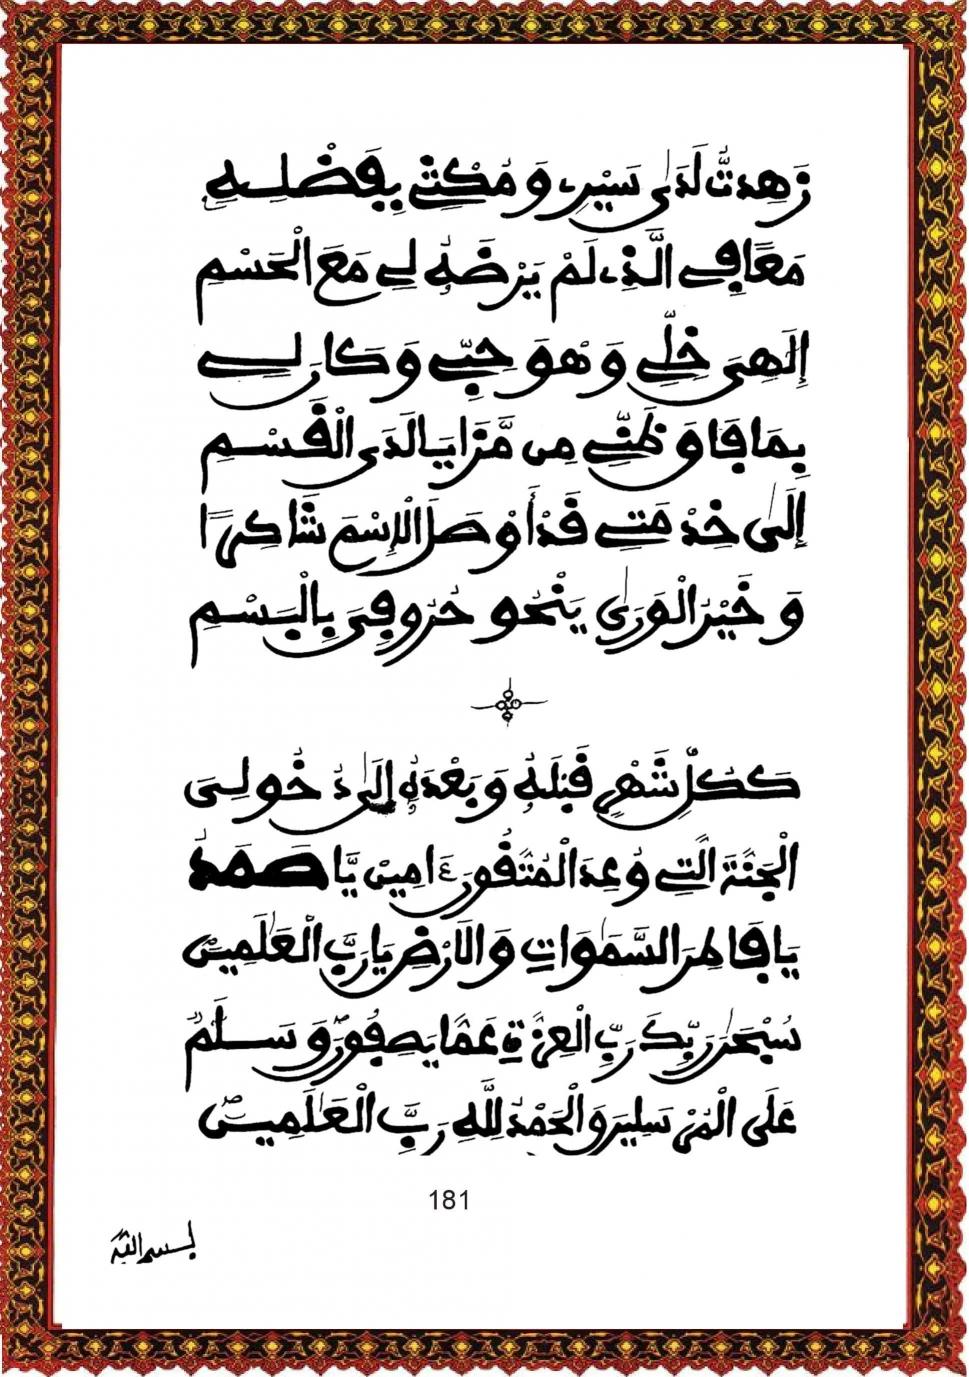 زَهِدتُّ لَدَى سَيْرِي وَمُكْثِي بِفَضْلِهِ
مَعًا فِي الَّذِي لَمْ يَرْضَهُ لِي مَعَ الْحَسْمِ
إِلَهِيَ خِلِّي وَهْوَ حِبِّي وَكَانَ لِي
بِمَا فَاقَ ظَنِّي مِن مَّزَايَا لَدَى الْقَسْمِ
إِلَى خِدْمَتِي قَدْ أَوْصَلَ الْإِسْمَ شَاكِرًا
وَخَيْرُ الْوَرَى يَنْحُو حُرُوفِيَ بِالْبَسْمِ
كَكُلِّ شَهْرٍ قَبْلَهُ وَبَعْدَهُ إِلَى دُخُولِيَ
الْجَنَّةَ الَّتِي وُعِدَ الْمُتَّقُونَ ءَامِينَ يَا صَمَدُ
يَا فَاطِرَ السَّمَوَاتِ وَالْأَرْضِ يَا رَبَّ الْعَلَمِينَ
سُبْحَنَ رَبِّكَ رَبِّ الْعِزَّةِ عَمَّا يَصِفُونَ وَسَلَمٌ
عَلَى الْمُرْسَلِينَ وَالْحَمْدُ لِلَّهِ رَبِّ الْعَلَمِينَ
181
بسم الله